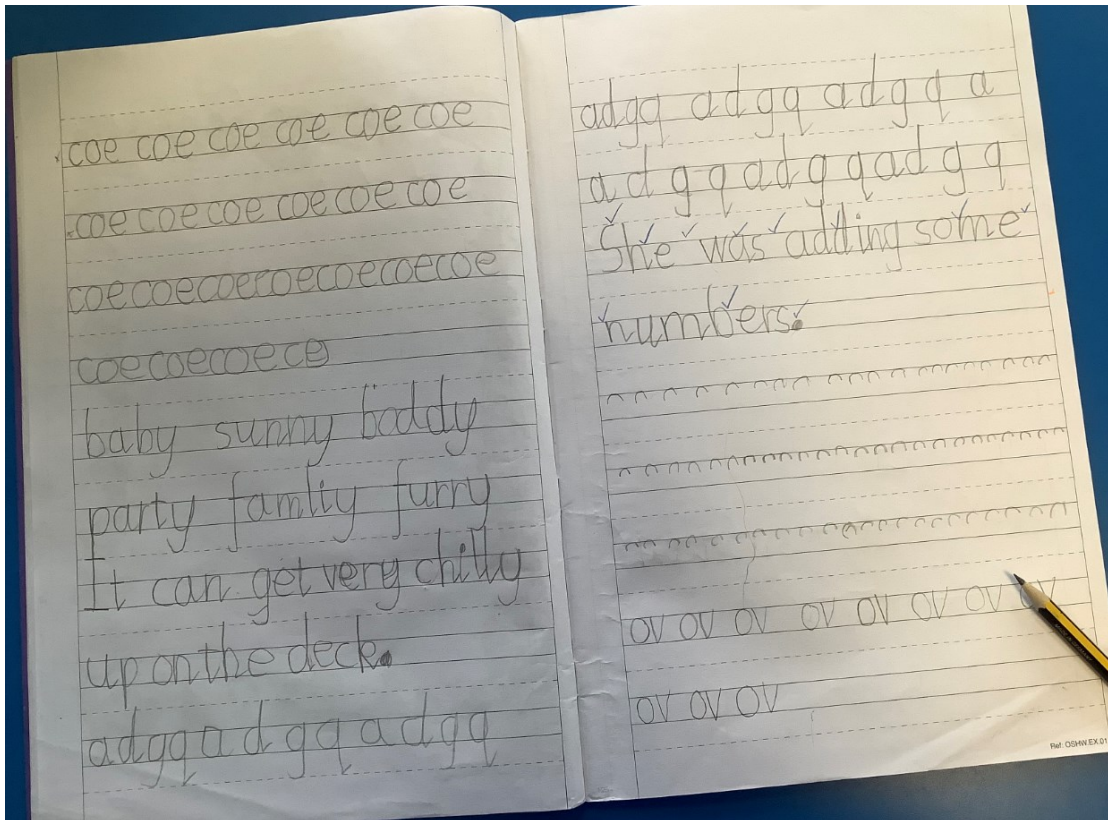 coe coe coe coe coe coe
coe coe coe coe coe coe
coe coe coe coe coe coe
coe coe coe ce
baby sunny boddy
party famliy furry
It can get very chilly
up on the deck.
adgq a d g q a d g q
adgq a d g q a d g q a
a d g q a d g q a d g q
She was adding some
numbers.
ov ov ov ov ov ov ov
ov ov ov
Ref: OSHW.EX.01